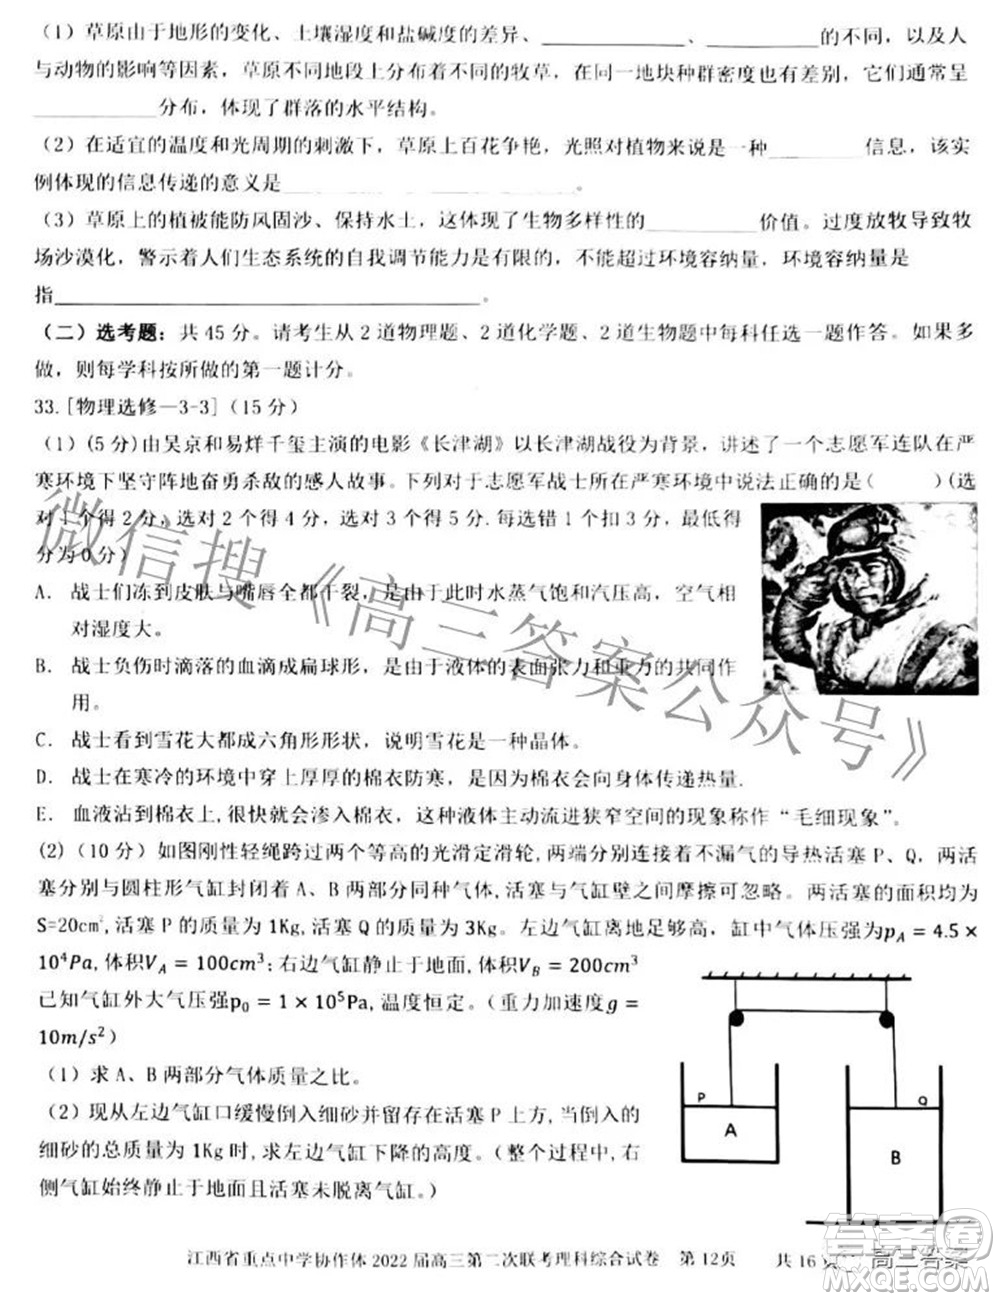 （1）草原由于地形的变化、土壤湿度和盐碱度的差异、____________、____________的不同，以及人
与动物的影响等因素，草原不同地段上分布着不同的牧草，在同一地块种群密度也有差别，它们通常呈
____________分布，体现了群落的水平结构。
（2）在适宜的温度和光周期的刺激下，草原上百花争艳，光照对植物来说是一种__________信息，该实
例体现的信息传递的意义是______________________________。
（3）草原上的植被能防风固沙、保持水土，这体现了生物多样性的____________价值。过度放牧导致牧
场沙漠化，警示着人们生态系统的自我调节能力是有限的，不能超过环境容纳量，环境容纳量是
指____________________________________________。
（二）选考题：共 45 分。请考生从 2 道物理题、2 道化学题、2 道生物题中每科任选一题作答。如果多
做，则每学科按所做的第一题计分。
33.[物理选修—3-3]（15 分）
（1）(5 分)由吴京和易烊千玺主演的电影《长津湖》以长津湖战役为背景，讲述了一个志愿军连队在严
寒环境下坚守阵地奋勇杀敌的感人故事。下列对于志愿军战士所处的严寒环境中说法正确的是（　　）(选
对 1 个得 2 分，选对 2 个得 4 分，选对 3 个得 5 分.每选错 1 个扣 3 分，最低得
分为 0 分)
A. 战士们冻到皮肤与嘴唇全都干裂,是由于此时水蒸气饱和汽压高，空气相
对湿度大。
B. 战士负伤时滴落的血滴成扁球形，是由于液体的表面张力和重力的共同作
用。
C. 战士看到雪花大都成六角形形状，说明雪花是一种晶体。
D. 战士在寒冷的环境中穿上厚厚的棉衣防寒，是因为棉衣会向身体传递热量.
E. 血液沾到棉衣上,很快就会浸入棉衣，这种液体主动流进狭窄空间的现象称作“毛细现象”。
(2)（10 分）如图刚性轻绳跨过两个等高的光滑定滑轮,两端分别连接着不漏气的导热活塞 P、Q，两活
塞分别与圆柱形气缸封闭着 A、B 两种气体,活塞与气缸壁之间摩擦可忽略。两活塞的面积均为
S=20cm²,活塞 P 的质量为1Kg,活塞 Q 的质量为3Kg。左边气缸离地足够高，缸中气体压强为p_A = 4.5 ×
10⁴Pa,体积V_A = 100cm³;右边气缸静止于地面,体积V_B = 200cm³
已知气缸外大气压强p₀ = 1 × 10⁵Pa,温度恒定。（重力加速度g =
10m/s²）
（1）求 A、B 两部分气体质量之比。
（2）现从左边气缸口缓慢倒入细砂并留存在活塞 P 上方,当倒入的
细砂的总质量为 1Kg 时，求左边气缸下降的高度。（整个过程中,右
侧气缸始终静止于地面且活塞未脱离气缸。）
P
Q
A
B
江西省重点中学协作体 2022 届高三第二次联考理科综合试卷　第 12页　共 16 页
微信搜《高三答案公众号》
答案圈
高三答案